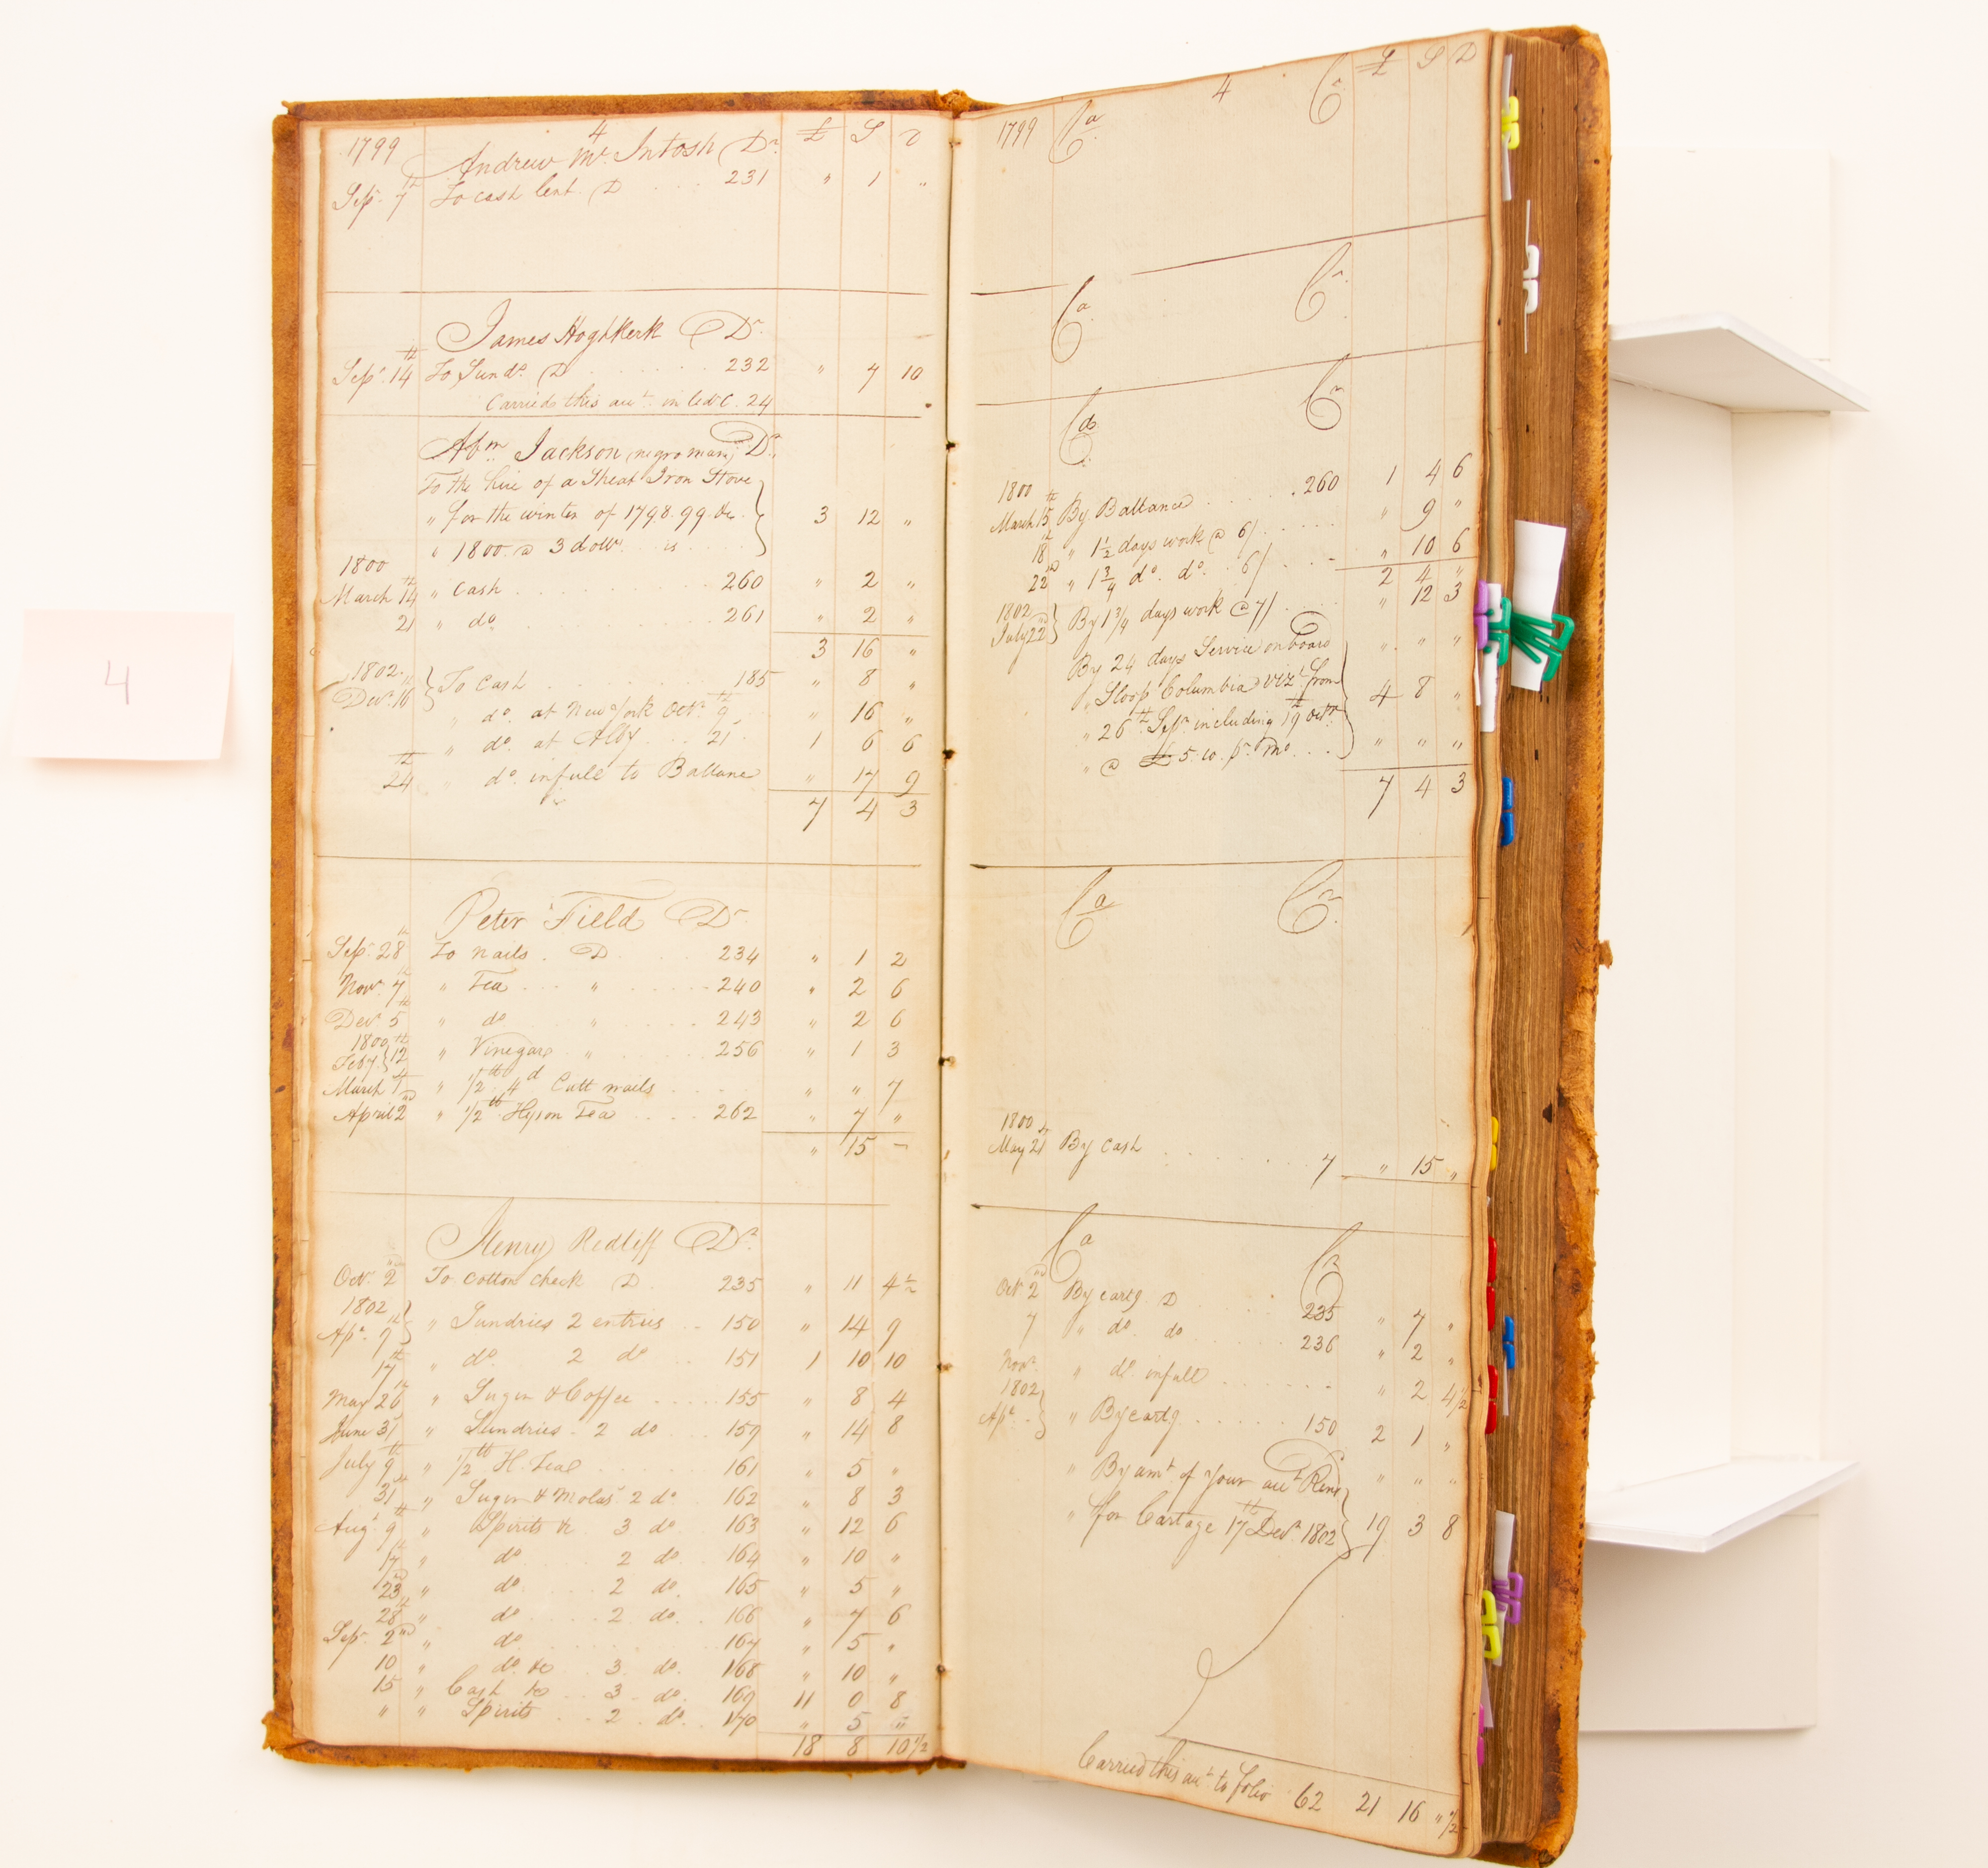 4
4
1799 Andrew Mc Intosh Dr £ S D
Sepr 7th To cash lent D . . . 231 " 1 "
James Hoghkerk Dr
Sepr 14th To Sunds D . . . 232 " 7 10
Carried this acct in led C. 24
Abm Jackson (negro man) Dr
To the hire of a Sheat Iron Stove
" for the winter of 1798. 99. &c 3 12 "
" 1800. @ 3 dollr is
1800
March 14th " Cash . . . 260 " 2 "
21 " do . . . 261 " 2 "
3 16 "
1802
Decr 16th To Cash . . . 185 " 8 "
" do. at New York Octr 9th " 16 "
" do. at Alby . . 21 1 6 6
24th " do. in full to Ballance " 17 9
7 4 3
Peter Field Dr
Sepr 28th To nails . D . . . 234 " 1 2
Novr 7th " Tea . . . " . . . 240 " 2 6
Decr 5th " do " . . . 243 " 2 6
1800
Feby 12th " Vinegar " . . . 256 " 1 3
March 7th " 1/2 lb 4d Cutt nails . . . " " 7
April 2nd " 1/2 lb Hyson Tea . . . 262 " 7 "
" 15 -
Henry Redliff Dr
Octr 2nd To cotton check D . 235 " 11 4 1/2
1802
Apr 9th " Sundries 2 entries . . 150 " 14 9
17th " do. 2 do . . 151 1 10 10
May 26th " Sugar & Coffee . . . 155 " 8 4
June 3 " Sundries - 2 do . . 159 " 14 8
July 9th " 1/2 lb H. Tea . . . 161 " 5 "
31st " Sugar & Molas 2 do 162 " 8 3
Augt 9th " Spirits &c 3 do. 163 " 12 6
17th " do . . . 2 do. 164 " 10 "
23d " do . . . 2 do. 165 " 5 "
28th " do . . . 2 do. . 166 " 7 6
Sepr 2nd " do . . . 167 " 5 "
10 " do. &c . 3 do. 168 " 10 "
15 " Cash &c . . 3 do. 169 11 0 8
" " Spirits . . 2 do. . 170 " 5 "
18 8 10 1/2
4 £ S D
1799 Ca Cr
Ca Cr
Cd Cr
1800
March 15th By Ballance . . . . 260 1 4 6
18th " 1 1/2 days work @ 6/ . . . " 9 "
22nd " 1 3/4 do. do. 6/ . . - " 10 6
2 4 "
1802
July 22nd By 1 3/4 days work @ 7/ . . " 12 3
By 24 days Service on board " " "
" Sloop Columbia vizt from
" 26th Sepr including 19th Octr 4 8 "
" @ £ 5. 10. pr. mo. . . " " "
7 4 3
Ca Cr
1800
May 21st By Cash . . . 7 " 15 "
Ca Cr
Octr 2nd By cartg. D . . 235 " 7 "
7 " do. do . . . 236 " 2 "
Novr " do. in full . . . " 2 4 1/2
1802
Apr - " By cartg . . . 150 2 1 "
" By amt of your acct Rend " " "
" for Cartage 17th Decr 1802 19 3 8
Carried this acct to folio 62 21 16 " 1/2